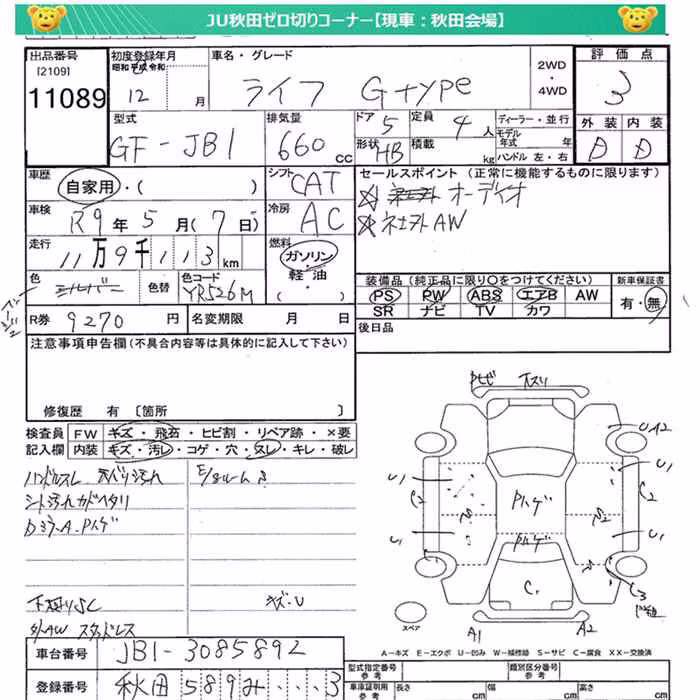 JU秋田ゼロ切りコーナー【現車：秋田会場】
出品番号
[2109]
11089
初度登録年月
昭和 平成 令和
12 月
車名・グレード
ライフ G type
2WD
・
4WD
評価点
3
外装 内装
D D
型式
GF-JB1
排気量
660 cc
ドア
5
定員
4 人
形状
HB
積載
kg
ディーラー・並行
モデル
年式 年
ハンドル 左・右
車歴
自家用・( )
シフト
CAT
セールスポイント (正常に機能するものに限ります)
オーディオ
社外AW
車検
R9年5月(7日)
冷房
AC
走行
11万9千113km
燃料
ガソリン
軽油
( ・ )
色
シルバー
色替
色コード
YR526M
装備品 (純正品に限り○をつけてください)
PS PW ABS エアB AW
SR ナビ TV カワ
新車保証書
有・無
R券 9270 円
名変期限 月 日
後日品
注意事項申告欄(不具合内容等は具体的に記入して下さい)
修復歴 有 〔箇所 〕
検査員
記入欄
FW キズ・飛石・ヒビ割・リペア跡・×要
内装 キズ・汚レ・コゲ・穴・スレ・キレ・破レ
ハンドルスレ 天バリ汚れ
シート汚れ カドヘタリ
Dミラー・A・Pハゲ
E/gルーム
下廻りSC
キズ・U
外AW スタッドレス
Pヒビ
スリ
U A2
U1
C2
Pハゲ
U1
C2
U1
Pハゲ
U1
C
C3
A1
A2
スペア
A-キズ E-エクボ U-凹み W-補修跡 S-サビ C-腐食 XX-交換済
車台番号
JB1-3085892
登録番号
秋田 589 み ・・・3
型式指定番号
参考
類別区分番号
参考
車庫証明用
参考
長さ cm
幅 cm
高さ cm